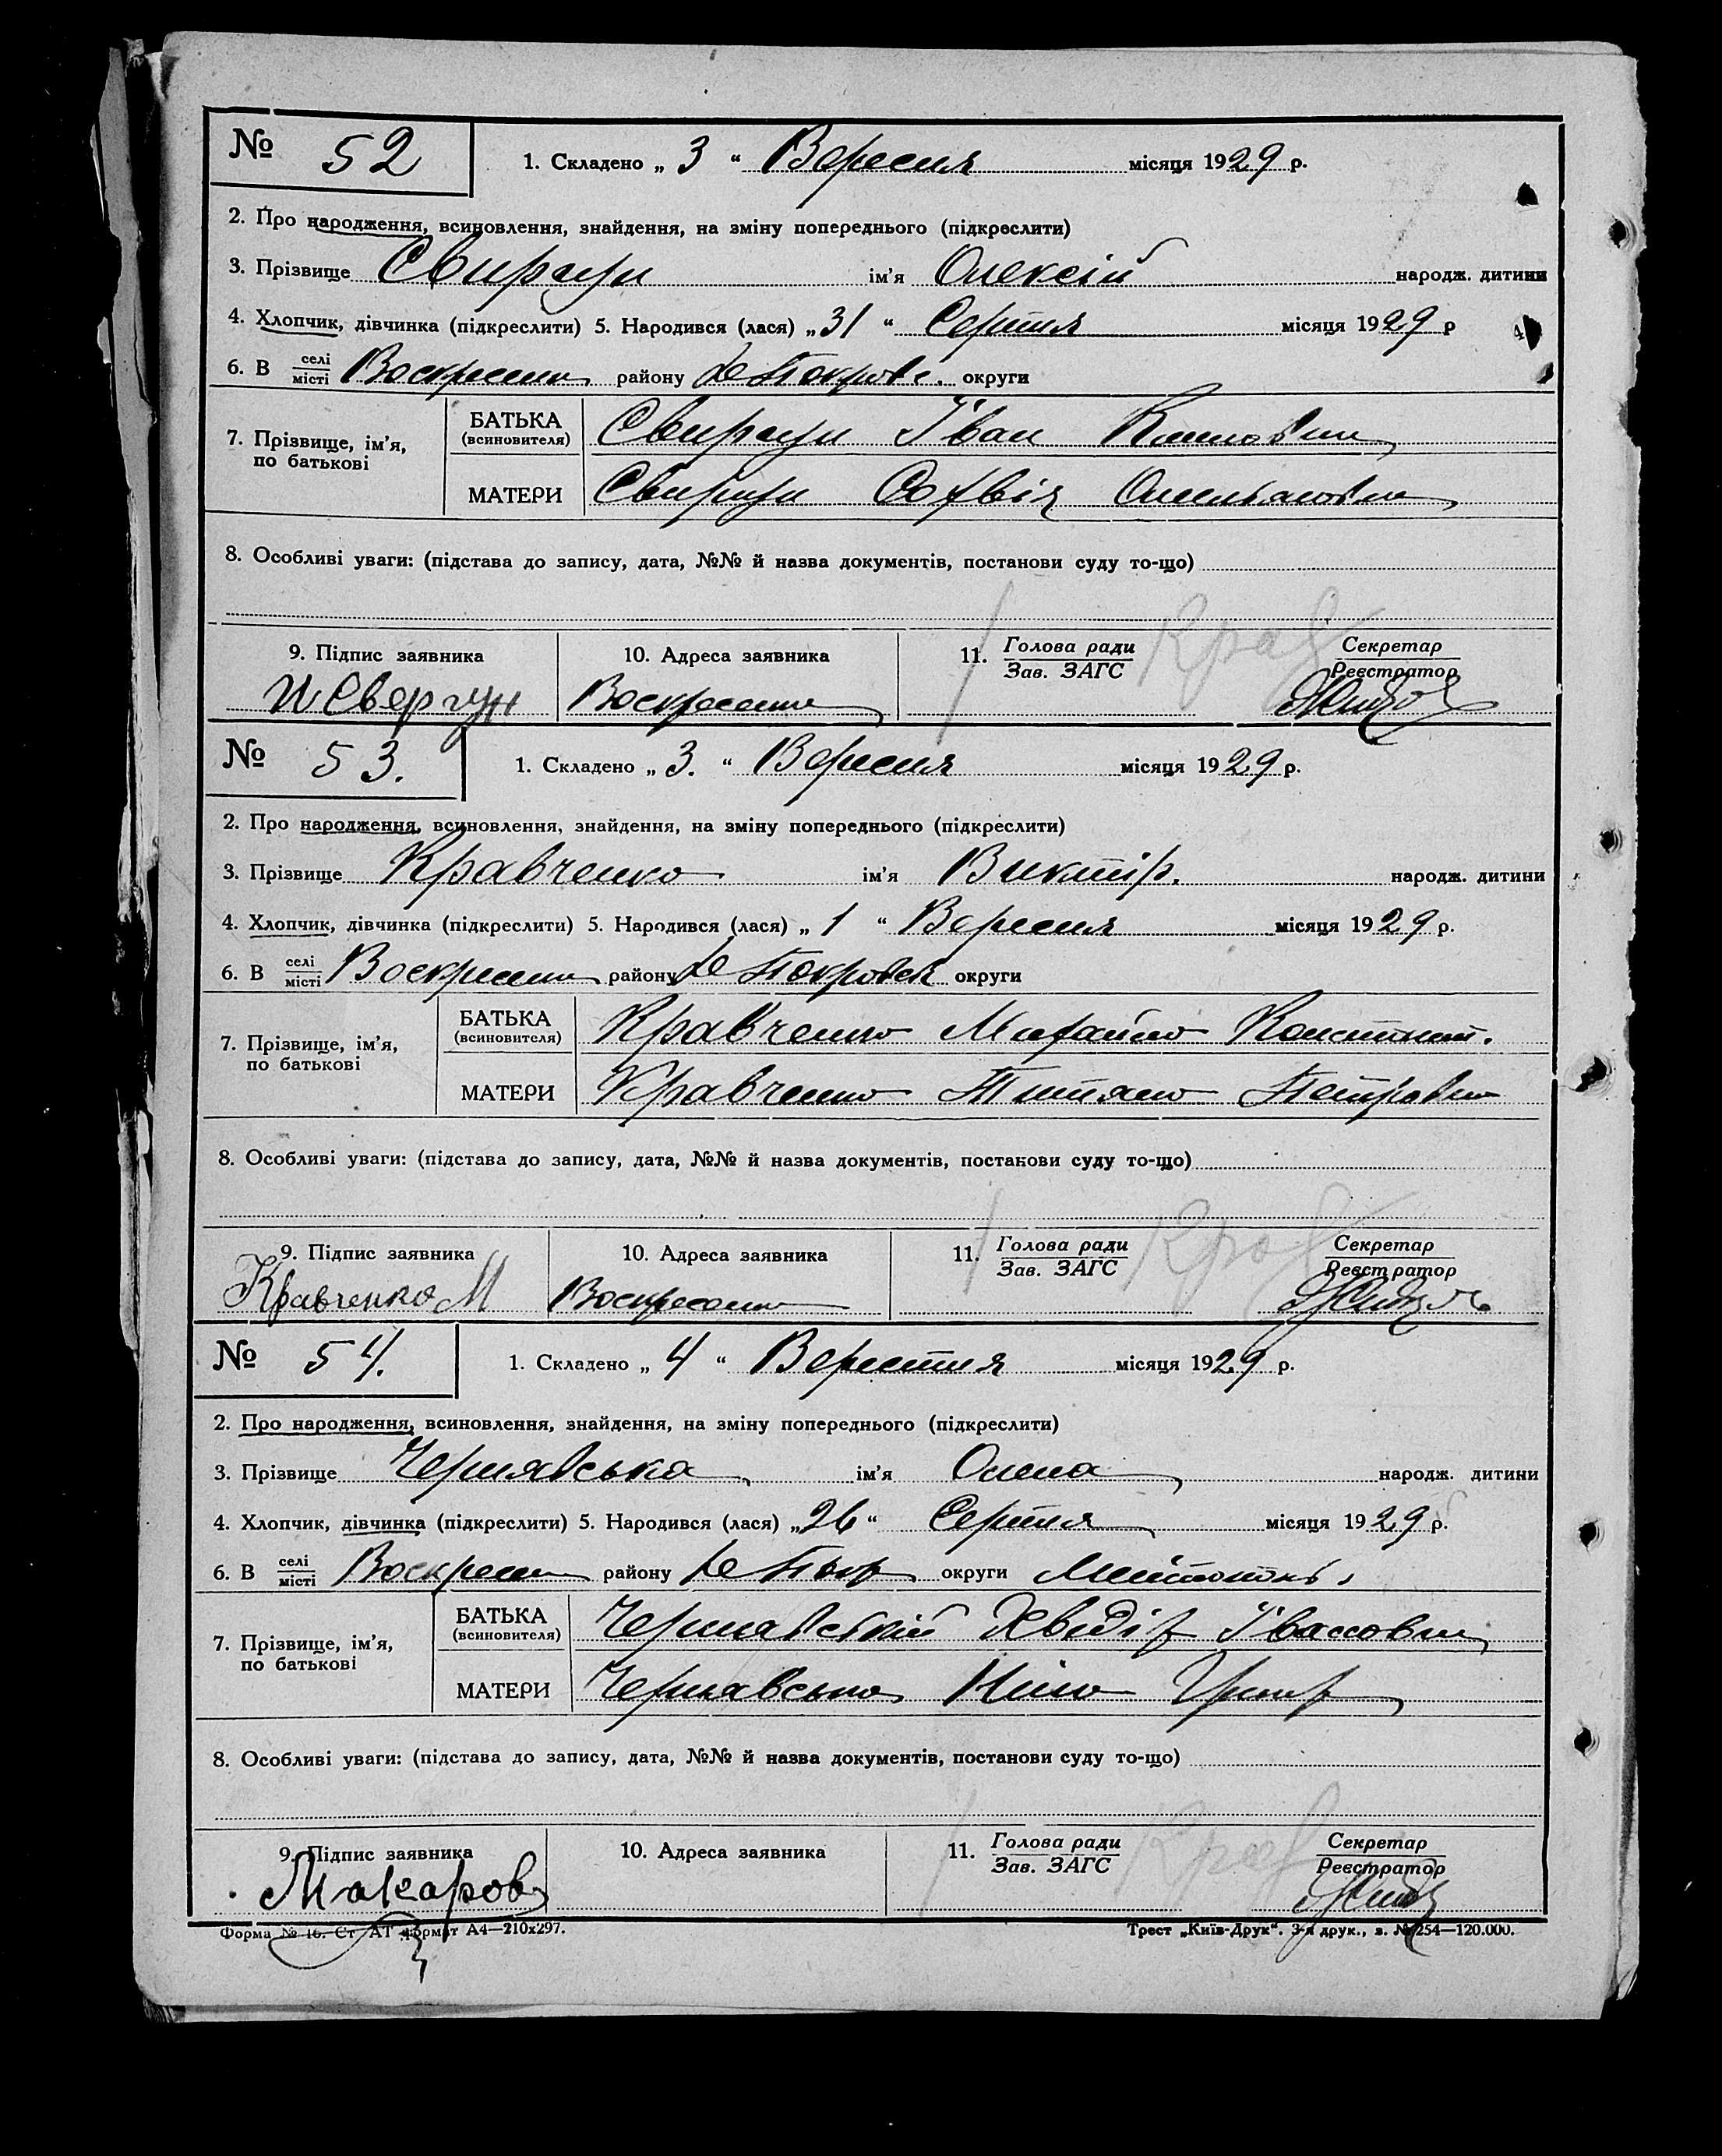 № 52 1. Складено „3“ Вересня місяця 1929 р.
2. Про народження, всиновлення, знайдення, на зміну попереднього (підкреслити)
3. Прізвище Свиргун ім'я Олексій народж. дитини
4. Хлопчик, дівчинка (підкреслити) 5. Народився (лася) „31“ Серпня місяця 1929 р
6. В селі місті Воскресенка району В Покровс. округи
7. Прізвище, ім'я, по батькові
БАТЬКА (всиновителя) Свиргун Іван
МАТЕРИ Свиргун Софвія Омельянівна
8. Особливі уваги: (підстава до запису, дата, №№ й назва документів, постанови суду то-що)
9. Підпис заявника 10. Адреса заявника 11. Голова ради Зав. ЗАГС Секретар Реєстратор
И Свергун Воскресенка Крав
№ 53. 1. Складено „3.“ Вересня місяця 1929 р.
2. Про народження, всиновлення, знайдення, на зміну попереднього (підкреслити)
3. Прізвище Кравченко ім'я Виктір. народж. дитини
4. Хлопчик, дівчинка (підкреслити) 5. Народився (лася) „1“ Вересня місяця 1929 р.
6. В селі місті Воскресенка району В Покровськ округи
7. Прізвище, ім'я, по батькові
БАТЬКА (всиновителя) Кравченко Михайло Констинт.
МАТЕРИ Кравченко Титяна Петровна
8. Особливі уваги: (підстава до запису, дата, №№ й назва документів, постанови суду то-що)
9. Підпис заявника 10. Адреса заявника 11. Голова ради Зав. ЗАГС Секретар Реєстратор
Кравченко М Воскресенка Крав
№ 54. 1. Складено „4“ Верестня місяця 1929 р.
2. Про народження, всиновлення, знайдення, на зміну попереднього (підкреслити)
3. Прізвище Чернявська ім'я Олена народж. дитини
4. Хлопчик, дівчинка (підкреслити) 5. Народився (лася) „26“ Серпня місяця 1929 р.
6. В селі місті Воскресен району В Покр округи
7. Прізвище, ім'я, по батькові
БАТЬКА (всиновителя) Чернявський Іванович
МАТЕРИ Чернявська Ніна Григ
8. Особливі уваги: (підстава до запису, дата, №№ й назва документів, постанови суду то-що)
9. Підпис заявника 10. Адреса заявника 11. Голова ради Зав. ЗАГС Секретар Реєстратор
Макаров Крав
Форма № 16. Ст АТ формат А4—210х297. Трест „Київ-Друк“. 3-я друк., з. № 254—120.000.